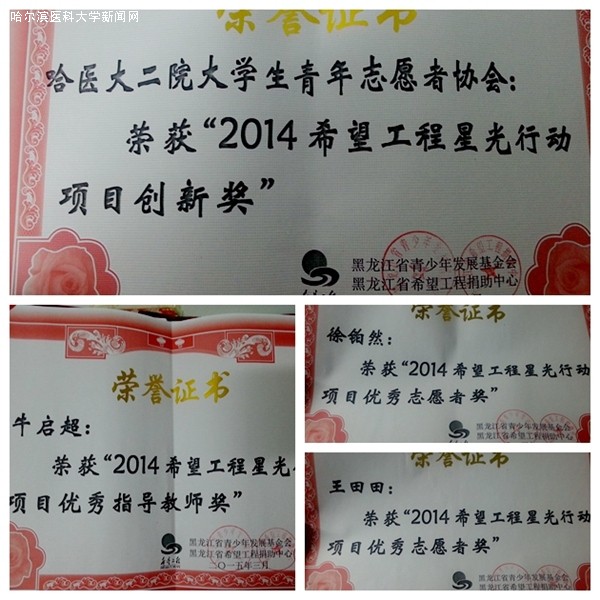 哈尔滨医科大学新闻网
荣誉证书
哈医大二院大学生青年志愿者协会：
荣获“2014希望工程星光行动
项目创新奖”
黑龙江省青少年发展基金会
黑龙江省希望工程捐助中心
荣誉证书
牛启超：
荣获“2014希望工程星光
项目优秀指导教师奖”
黑龙江省青少年发展基金会
黑龙江省希望工程捐助中心
二〇一五年三月
荣誉证书
徐铂然：
荣获“2014希望工程星光行动
项目优秀志愿者奖”
黑龙江省青少年发展基金会
黑龙江省希望工程捐助中心
荣誉证书
王田田：
荣获“2014希望工程星光行动
项目优秀志愿者奖”
黑龙江省青少年发展基金会
黑龙江省希望工程捐助中心